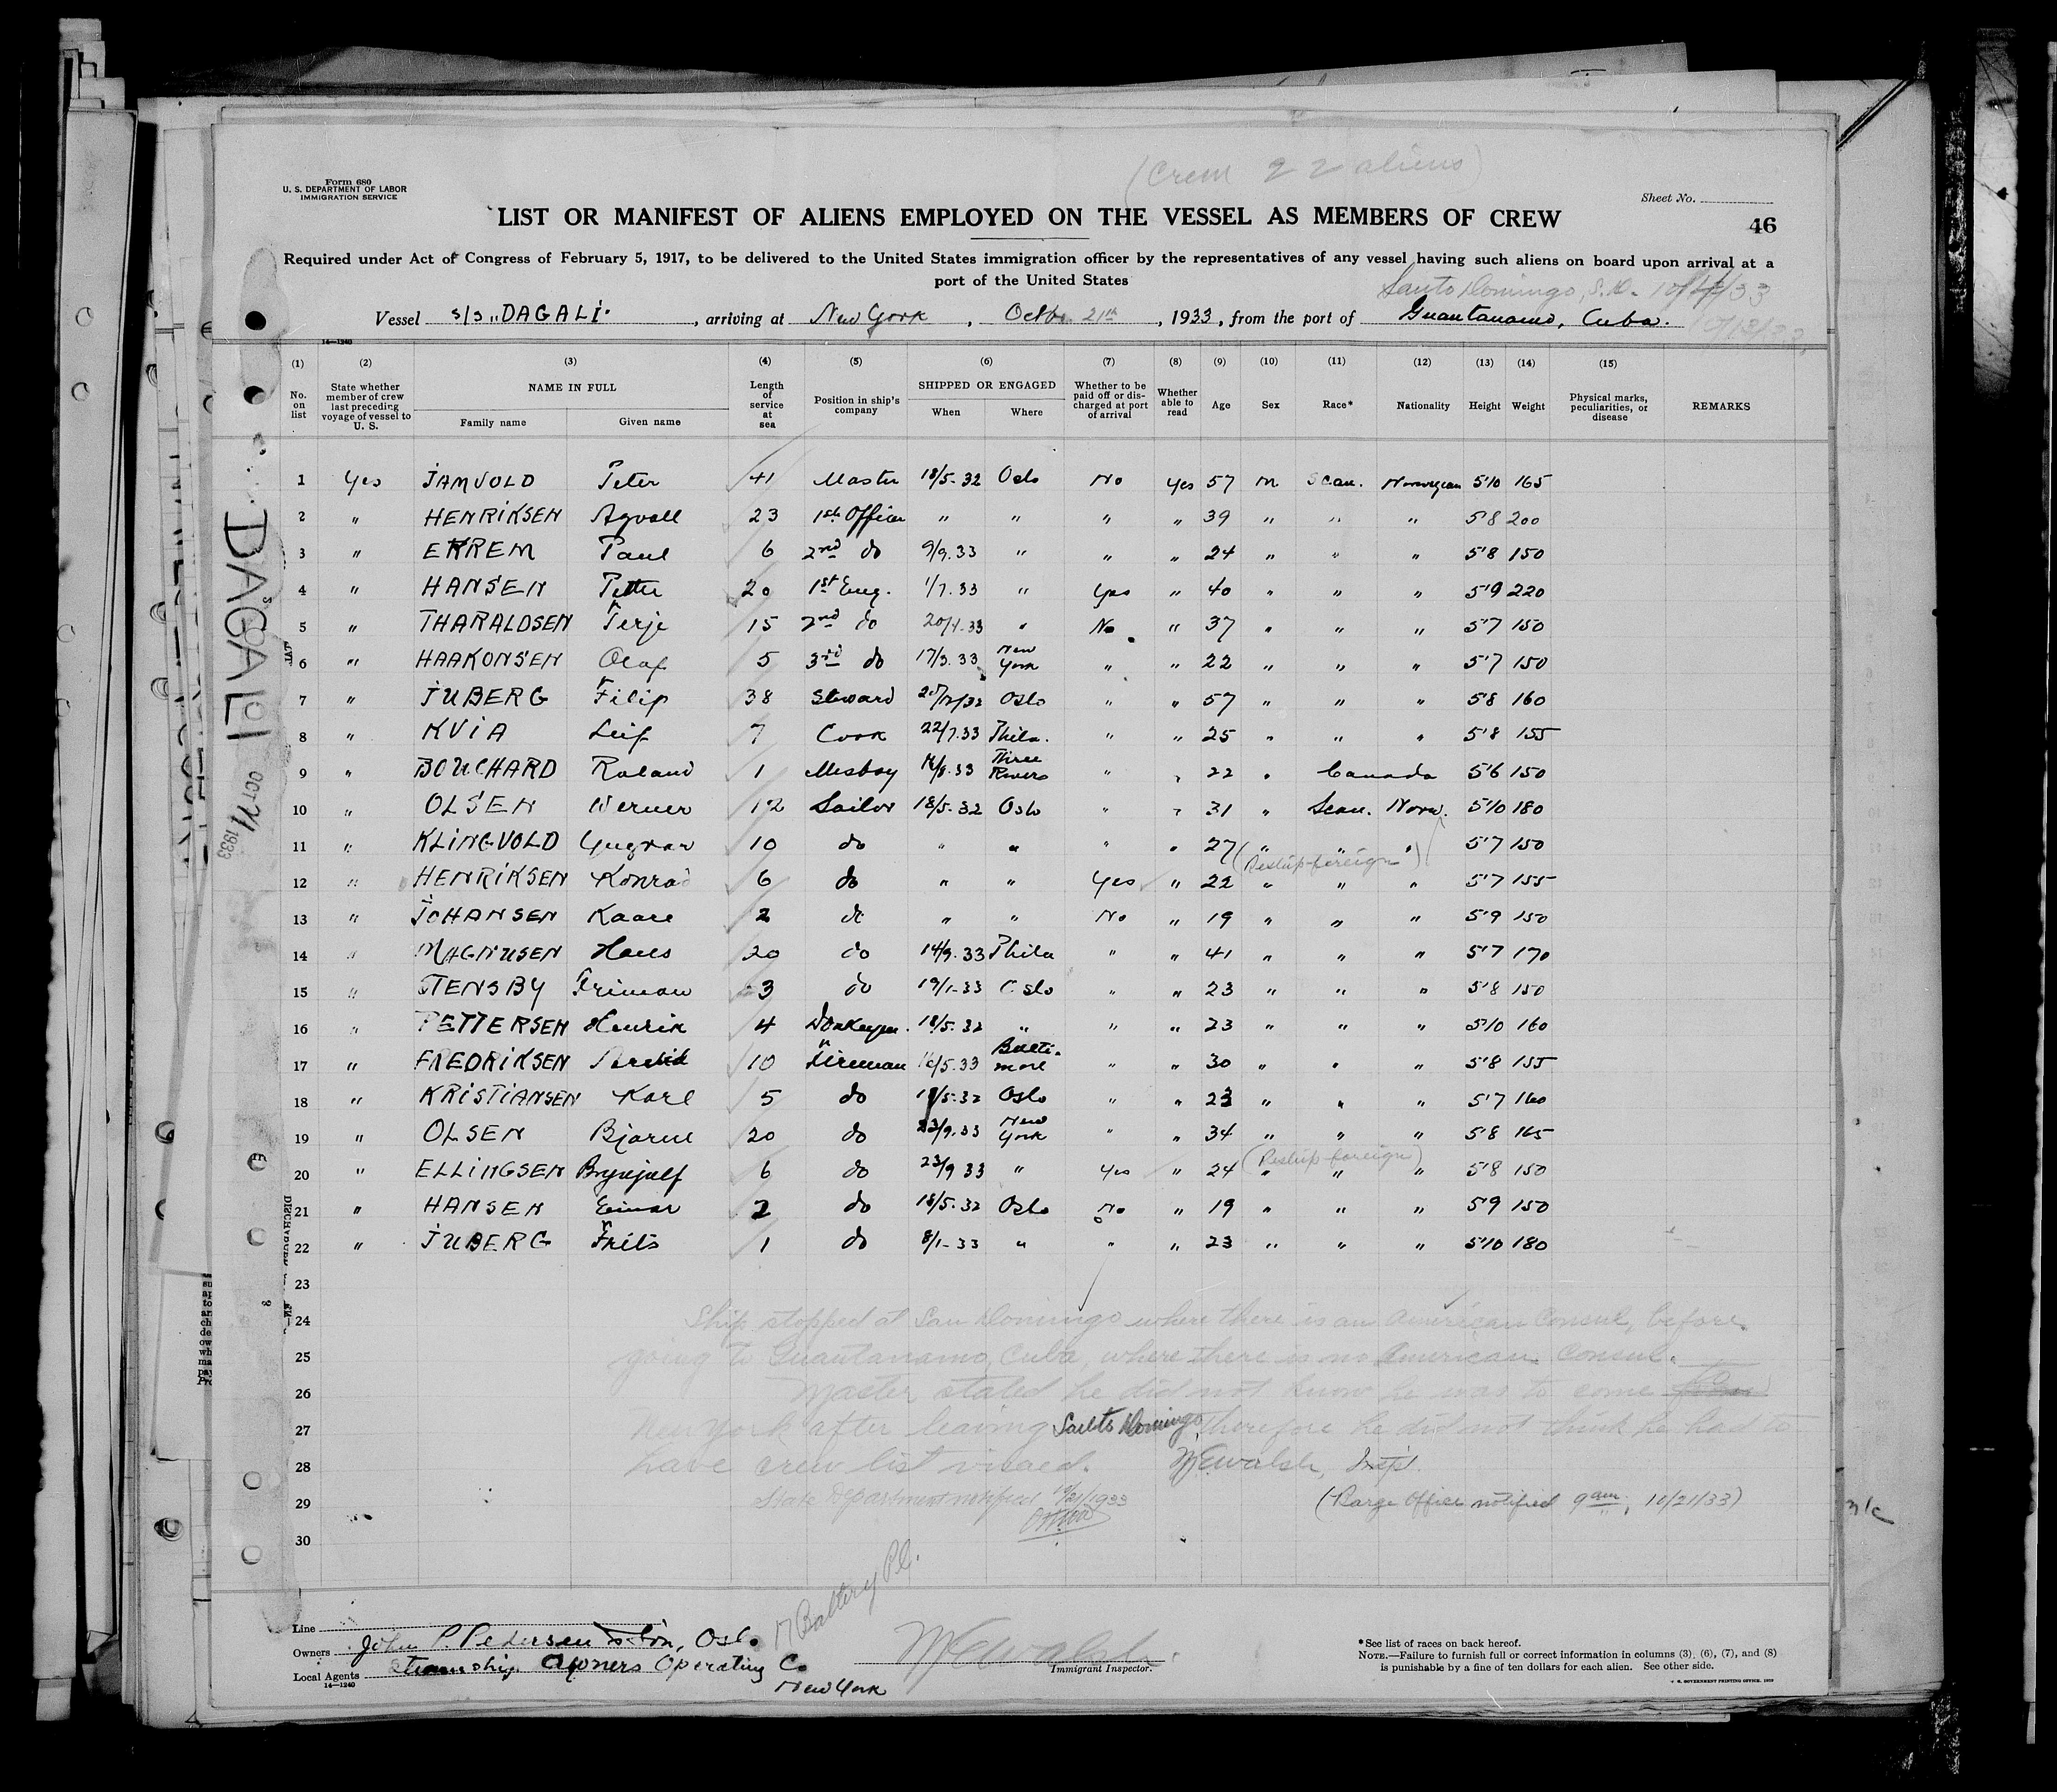 (Crew 22 aliens)
Form 680
U. S. DEPARTMENT OF LABOR
IMMIGRATION SERVICE
Sheet No.
LIST OR MANIFEST OF ALIENS EMPLOYED ON THE VESSEL AS MEMBERS OF CREW
46
Required under Act of Congress of February 5, 1917, to be delivered to the United States immigration officer by the representatives of any vessel having such aliens on board upon arrival at a
port of the United States
Santo Domingo, S.D.
Vessel S/S "DAGALI" , arriving at New York , Octbr. 21th , 1933, from the port of Guantanamo, Cuba. 10/13/33
14—1240
(1) (2) (3) (4) (5) (6) (7) (8) (9) (10) (11) (12) (13) (14) (15)
No. on list State whether member of crew last preceding voyage of vessel to U. S. NAME IN FULL Family name Given name Length of service at sea Position in ship's company SHIPPED OR ENGAGED When Where Whether to be paid off or discharged at port of arrival Whether able to read Age Sex Race* Nationality Height Weight Physical marks, peculiarities, or disease REMARKS
1 Yes JAMVOLD Peter 41 Master 18/5-32 Oslo No Yes 57 m Scan. Norwegian 5'10 165
2 " HENRIKSEN Agvall 23 1st Officer " " " " 39 " " " 5'8 200
3 " EKREM Paul 6 2nd do 9/9.33 " " " 24 " " " 5'8 150
4 " HANSEN Petter 20 1st Eng. 1/7.33 " Yes " 40 " " " 5'9 220
5 " THARALDSEN Terje 15 2nd do 20/1.33 " No " 37 " " " 5'7 150
6 " HAAKONSEN Olaf 5 3rd do 17/3.33 New York " " 22 " " " 5'7 150
7 " JUBERG Filip 38 Steward Oslo " " 57 " " " 5'8 160
8 " KVIA Leif 7 Cook 22/7.33 Phila. " " 25 " " " 5'8 155
9 " BOUCHARD Roland 1 Mesboy Three Rivers " " 22 " Canada 5'6 150
10 " OLSEN Werner 12 Sailor 18/5.32 Oslo " " 31 " Scan. Norw. 5'10 180
11 " KLINGVOLD Yngvar 10 do " " " " 27 " " " 5'7 150
(Reship foreign)
12 " HENRIKSEN Konrad 6 do " " Yes " 22 " " " 5'7 155
13 " JOHANSEN Kaare 2 do " " No " 19 " " " 5'9 150
14 " MAGNUSEN Hans 20 do 14/9.33 Phila " " 41 " " " 5'7 170
15 " STENSBY 3 do 19/1-33 Oslo " " 23 " " " 5'8 150
16 " PETTERSEN Henrik 4 Donkeym. 18/5.32 " " " 23 " " " 5'10 160
17 " FREDRIKSEN 10 Fireman 16/5.33 Baltimore " " 30 " " " 5'8 155
18 " KRISTIANSEN Karl 5 do 18/5.32 Oslo " " 23 " " " 5'7 160
19 " OLSEN Bjarne 20 do 23/9.33 New York " " 34 " " " 5'8 165
(Reship foreign)
20 " ELLINGSEN Brynjulf 6 do 23/9 33 " Yes " 24 " " " 5'8 150
21 " HANSEN Einar 2 do 18/5.32 Oslo No " 19 " " " 5'9 150
22 " JUBERG Frits 1 do 8/1-33 " " " 23 " " " 5'10 180
23
24 Ship stopped at San Domingo where there is an American Consul, before
25 going to Guantanamo, Cuba, where there is no American Consul.
26 Master stated he did not know he was to come to
27 New York after leaving Santo Domingo therefore he did not think he had to
28 have crew list visaed. McEwalsh, Insp.
29 State Department notified 10/21/1933 (Barge Office notified 9 am, 10/21/33)
30
17 Battery Pl.
Line
Owners John P. Pedersen & Son, Oslo
Local Agents Steamship Owners Operating Co
New York
14—1240
Immigrant Inspector.
*See list of races on back hereof.
NOTE.—Failure to furnish full or correct information in columns (3), (6), (7), and (8)
is punishable by a fine of ten dollars for each alien. See other side.
DAGALI
OCT 21 1933